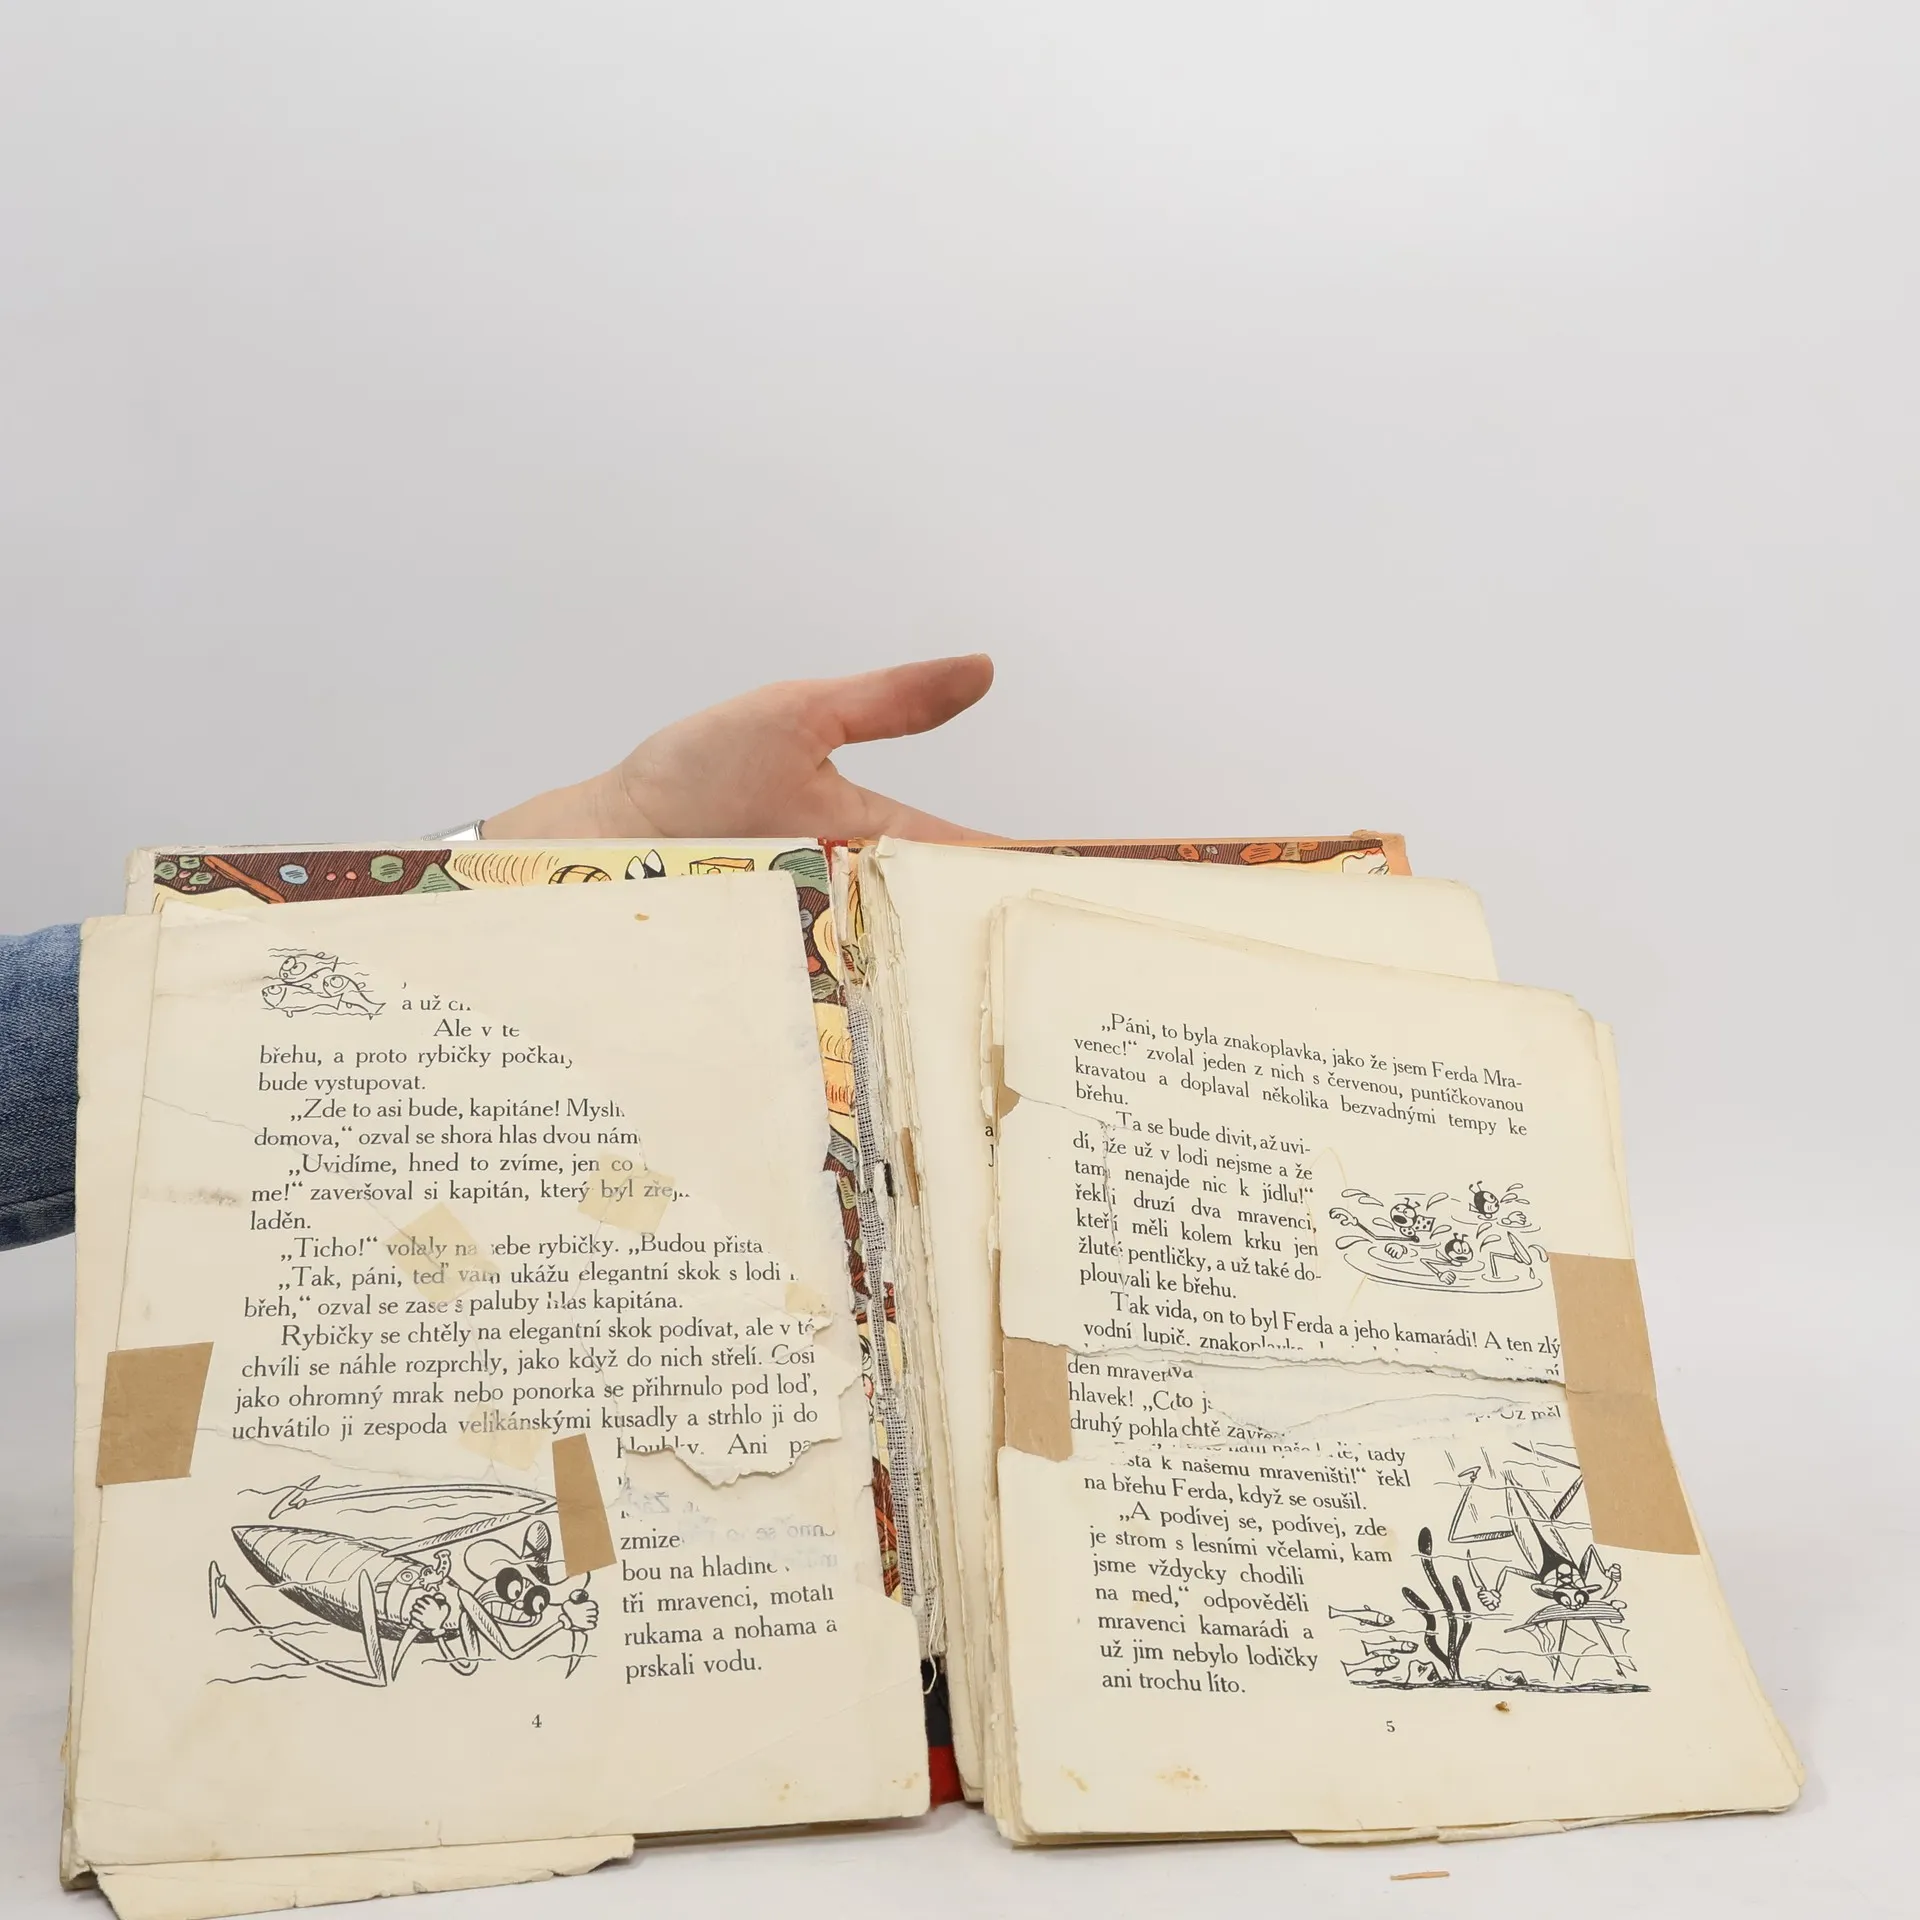 a už
Ale v te
břehu, a proto rybičky počkaj
bude vystupovat.
„Zde to asi bude, kapitáne! Mysl
domova,“ ozval se shora hlas dvou nám
„Uvidíme, hned to zvíme, jen co
me!“ zaveršoval si kapitán, který byl zřej
laděn.
„Ticho!“ volaly na sebe rybičky. „Budou přista
„Tak, páni, teď vám ukážu elegantní skok s lodi
břeh,“ ozval se zase s paluby hlas kapitána.
Rybičky se chtěly na elegantní skok podívat, ale v té
chvíli se náhle rozprchly, jako když do nich střelí. Cosi
jako ohromný mrak nebo ponorka se přihrnulo pod loď,
uchvátilo ji zespoda velikánskými kusadly a strhlo ji do
hloubky. Ani pa
zmize
bou na hladině
tři mravenci, motali
rukama a nohama a
prskali vodu.
4
„Páni, to byla znakoplavka, jako že jsem Ferda Mra-
venec!“ zvolal jeden z nich s červenou, puntíčkovanou
kravatou a doplaval několika bezvadnými tempy ke
břehu.
„Ta se bude divit, až uvi-
dí, že už v lodi nejsme a že
tam nenajde nic k jídlu!“
řekli druzí dva mravenci,
kteří měli kolem krku jen
žluté pentličky, a už také do-
plouvali ke břehu.
Tak vida, on to byl Ferda a jeho kamarádi! A ten zlý
vodní lupič, znakoplavka
den mraven
hlavek! „Co to j
druhý pohla chtě zavře
už měl
tady
sta k našemu mraveništi!“ řekl
na břehu Ferda, když se osušil.
„A podívej se, podívej, zde
je strom s lesními včelami, kam
jsme vždycky chodili
na med,“ odpověděli
mravenci kamarádi a
už jim nebylo lodičky
ani trochu líto.
5